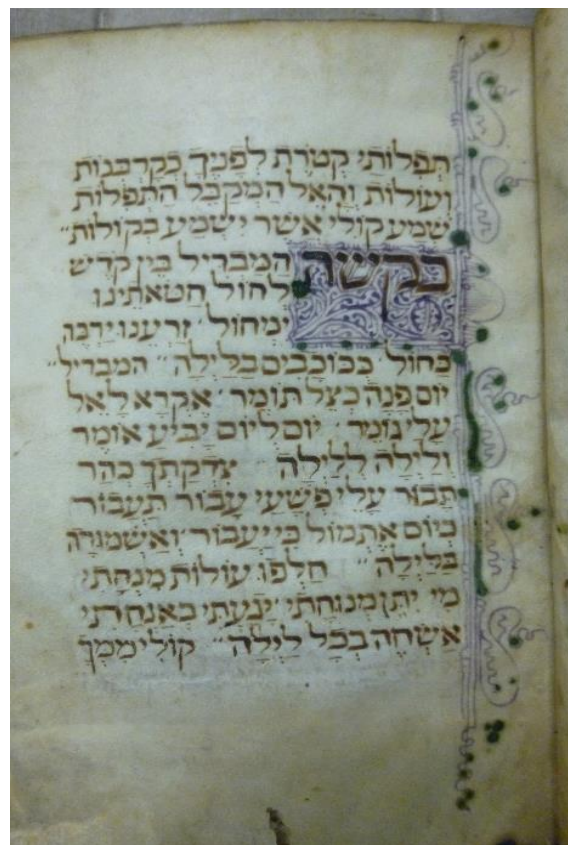 תְפִלּוֹתַי קְטֹרֶת לְפָנֶיךָ כְּקָרְבָּנוֹת
וְעוֹלוֹת וְהָאֵל הַמְקַבֵּל הַתְּפִלּוֹת
שְׁמַע קוֹלִי אֲשֶׁר יִשְׁמַע בְּקוֹלוֹת״
בקשת הַמַּבְדִּיל בֵּין קֹדֶשׁ
לְחוֹל חַטֹּאתֵינוּ
יִמְחוֹל׳ זַרְעֵנוּ יַרְבֶּה
כַּחוֹל כַּכּוֹכָבִים בַּלַּיְלָה״ המבדיל״
יוֹם פָּנָה כְּצֵל תּוֹמֶר׳ אֶקְרָא לָאֵל
עָלַי גּוֹמֵר׳ יוֹם לְיוֹם יַבִּיעַ אוֹמֶר
וְלַיְלָה לְלַיְלָה צִדְקָתְךָ כְּהַר
תָּבוֹר עֲלֵי פְשָׁעַי עָבוֹר תַּעֲבוֹר
כְּיוֹם אֶתְמוֹל כִּי יַעֲבוֹר׳ וְאַשְׁמוּרָה
בַלַּיְלָה״ חָלְפוּ עוֹלוֹת מִנְחָתִי
מִי יִתֵּן מְנוּחָתִי׳ יָגַעְתִּי בְאַנְחָתִי
אַשְׂחֶה בְּכָל לַיְלָה״ קוֹלִי מִמְּךָ